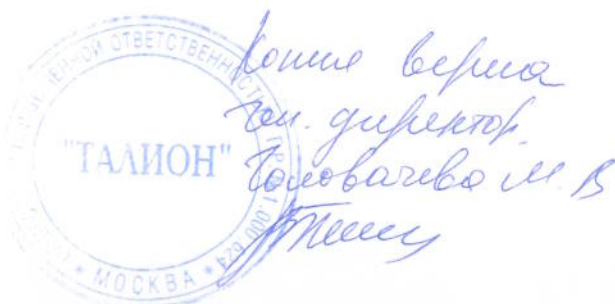 ОЙ ОТВЕТСТВЕННОСТИ
"ТАЛИОН"
* МОСКВА *
Копия верна
Ген. директор
Головачева М. В